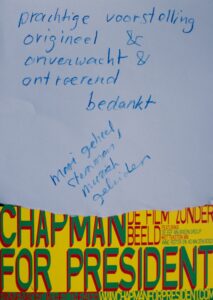 prachtige voorstelling
origineel &
onverwacht &
ontroerend
bedankt
mooi geheel,
stemmen
muziek
geluiden
CHAPMAN
DE FILM ZONDER
BEELD
FOR PRESIDENT
WWW.CHAPMANFORPRESIDENT.COM